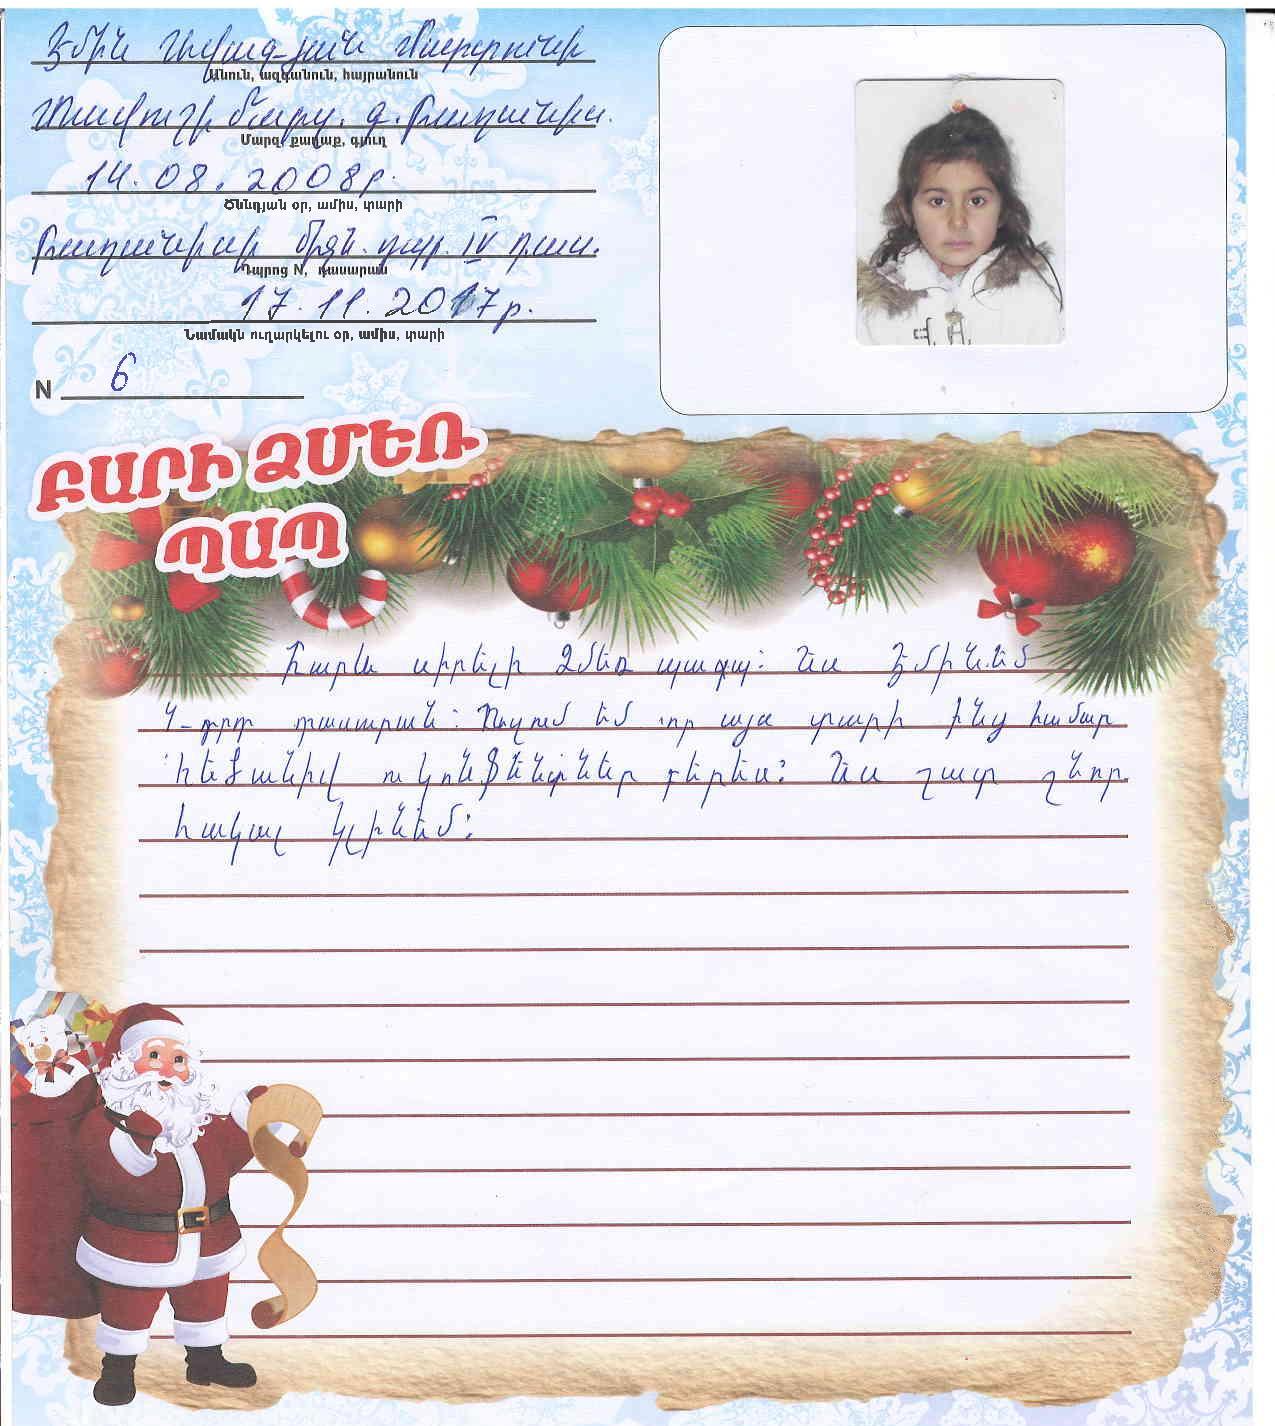 Էմին Այվազյան Մարտունի
Անուն, ազգանուն, հայրանուն
Տավուշի մարզ. գ. Բաղանիս.
Մարզ, քաղաք, գյուղ
14.08.2008թ.
Ծննդյան օր, ամիս, տարի
Բաղանիսի միջն. դպր. IV դաս.
Դպրոց N, դասարան
17.11.2017թ.
Նամակն ուղարկելու օր, ամիս, տարի
N 6
ԲԱՐԻ ՁՄԵՌ
ՊԱՊ
Բարև սիրելի Ձմեռ պապ: Ես Էմինն եմ
4-րդ դասարան: Ուզում եմ որ այս տարի ինձ համար
հեծանիվ ու կոնֆետներ բերես: Ես շատ շնոր
հակալ կլինեմ: